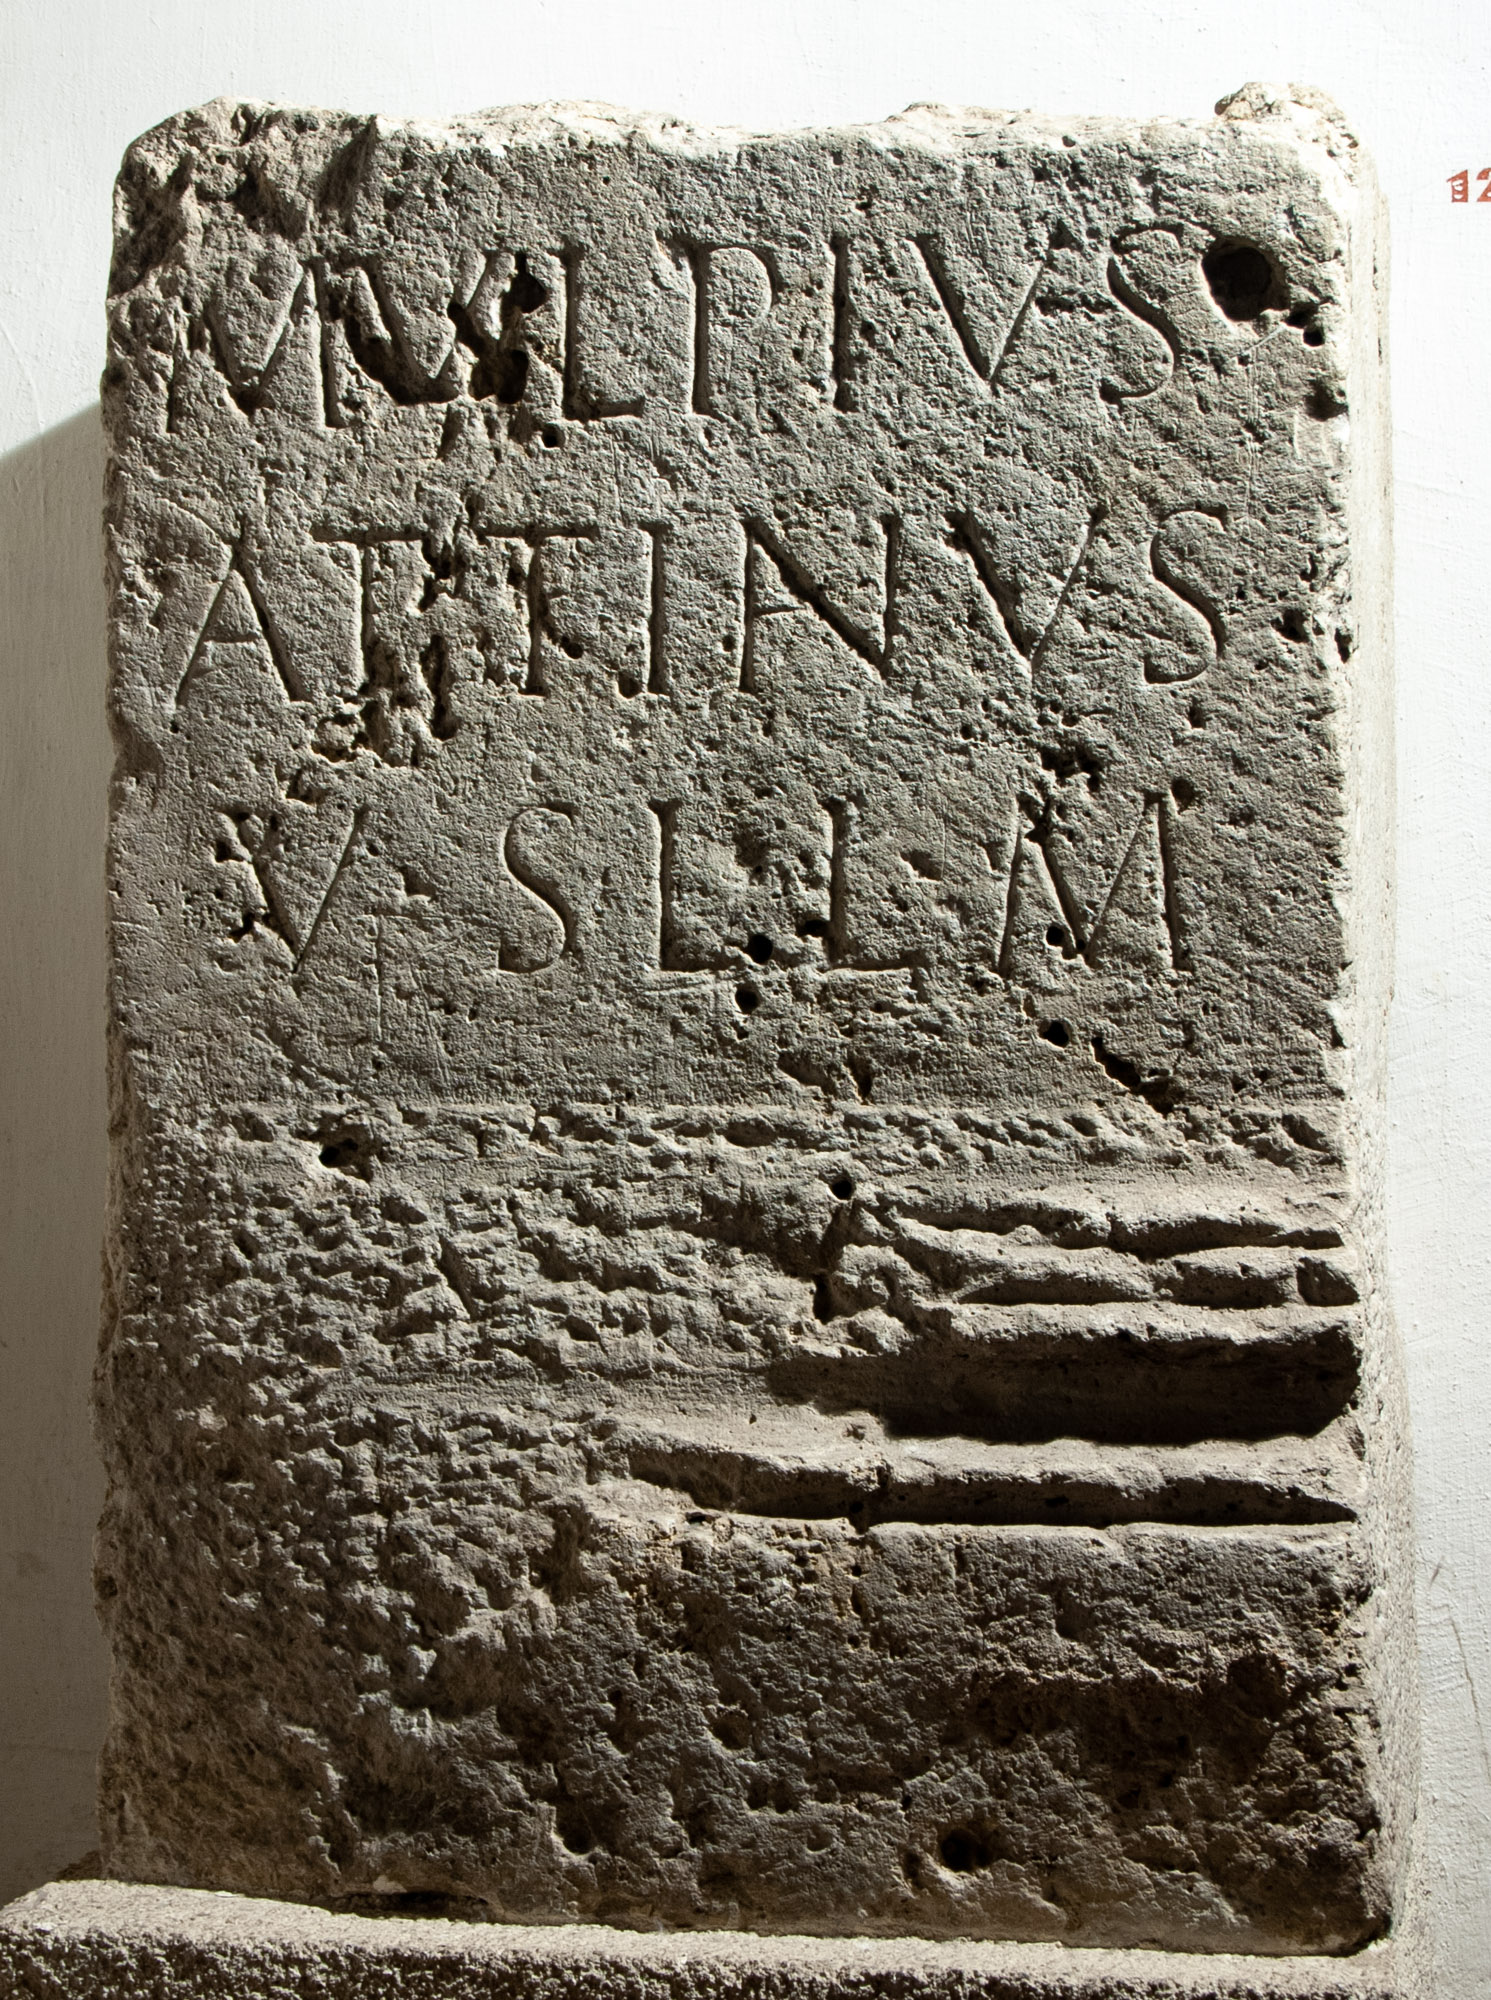 M VLPIVS
ATTIANVS
V S L L M